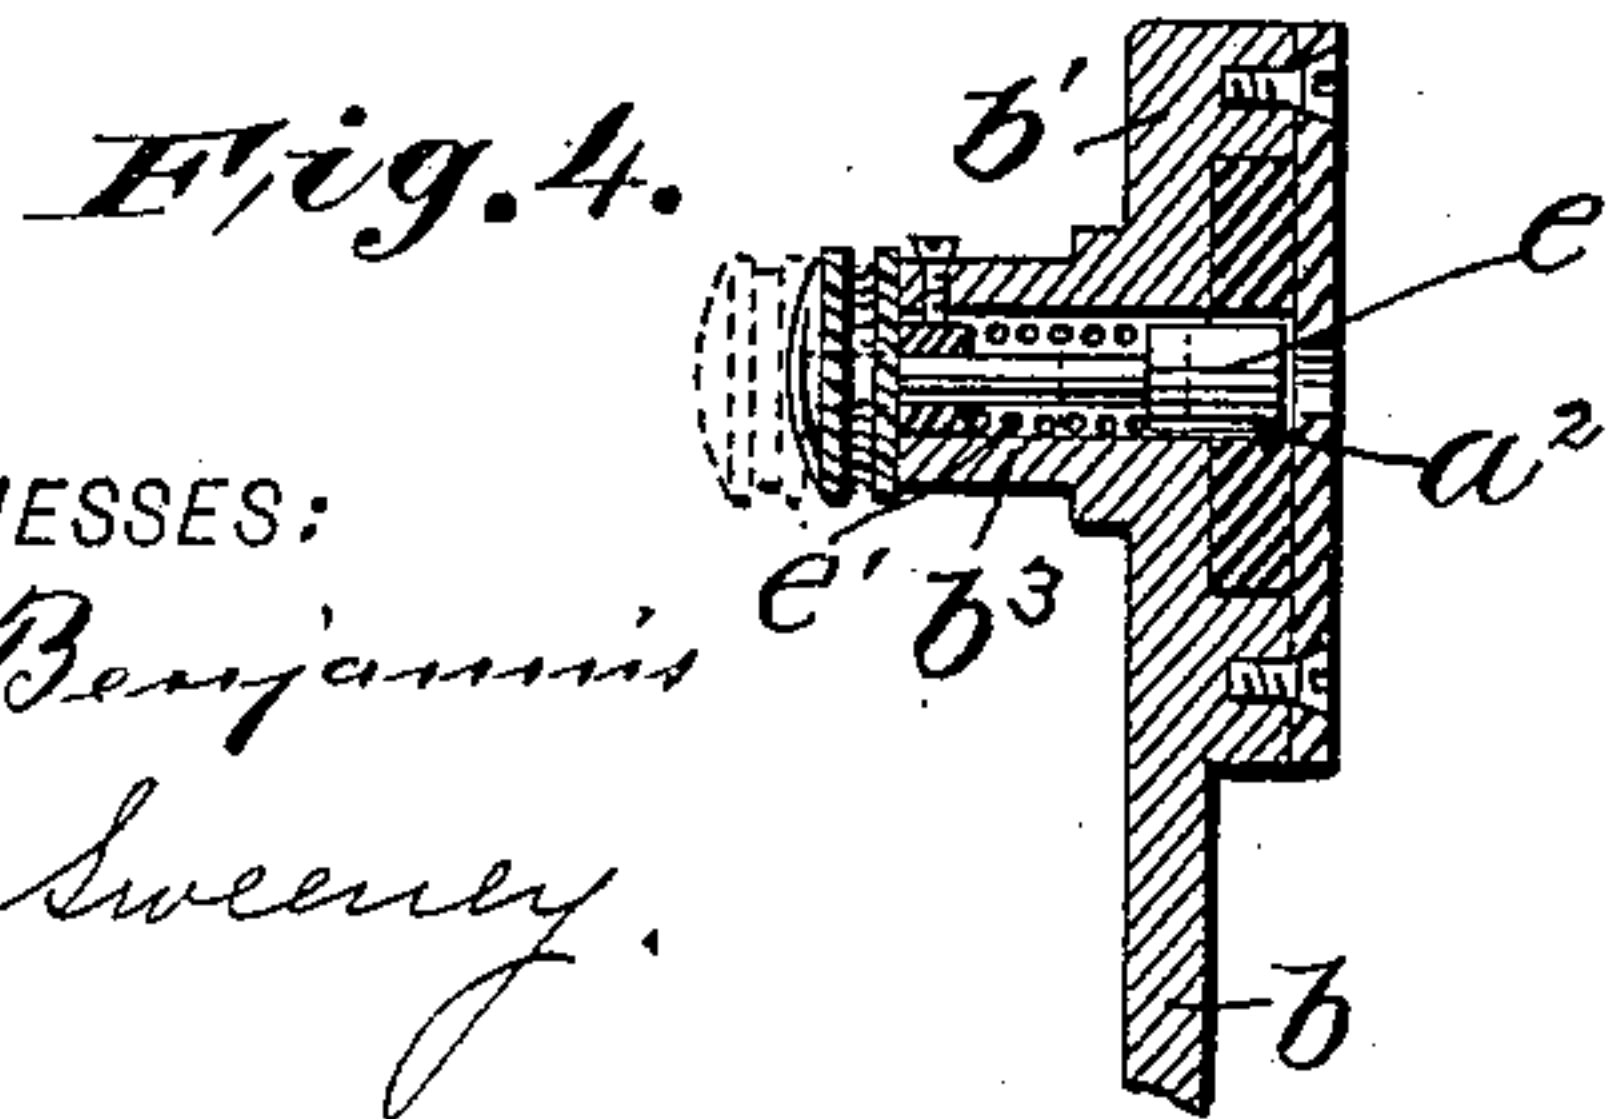 Fig. 4.
b'
e
a²
ESSES:
e' b³
Benjamin
Sweeney.
b